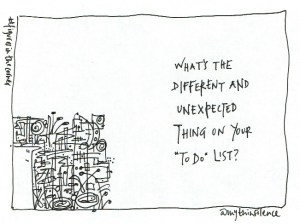 WHAT'S THE
DIFFERENT AND
UNEXPECTED
THING ON YOUR
"TO DO" LIST?